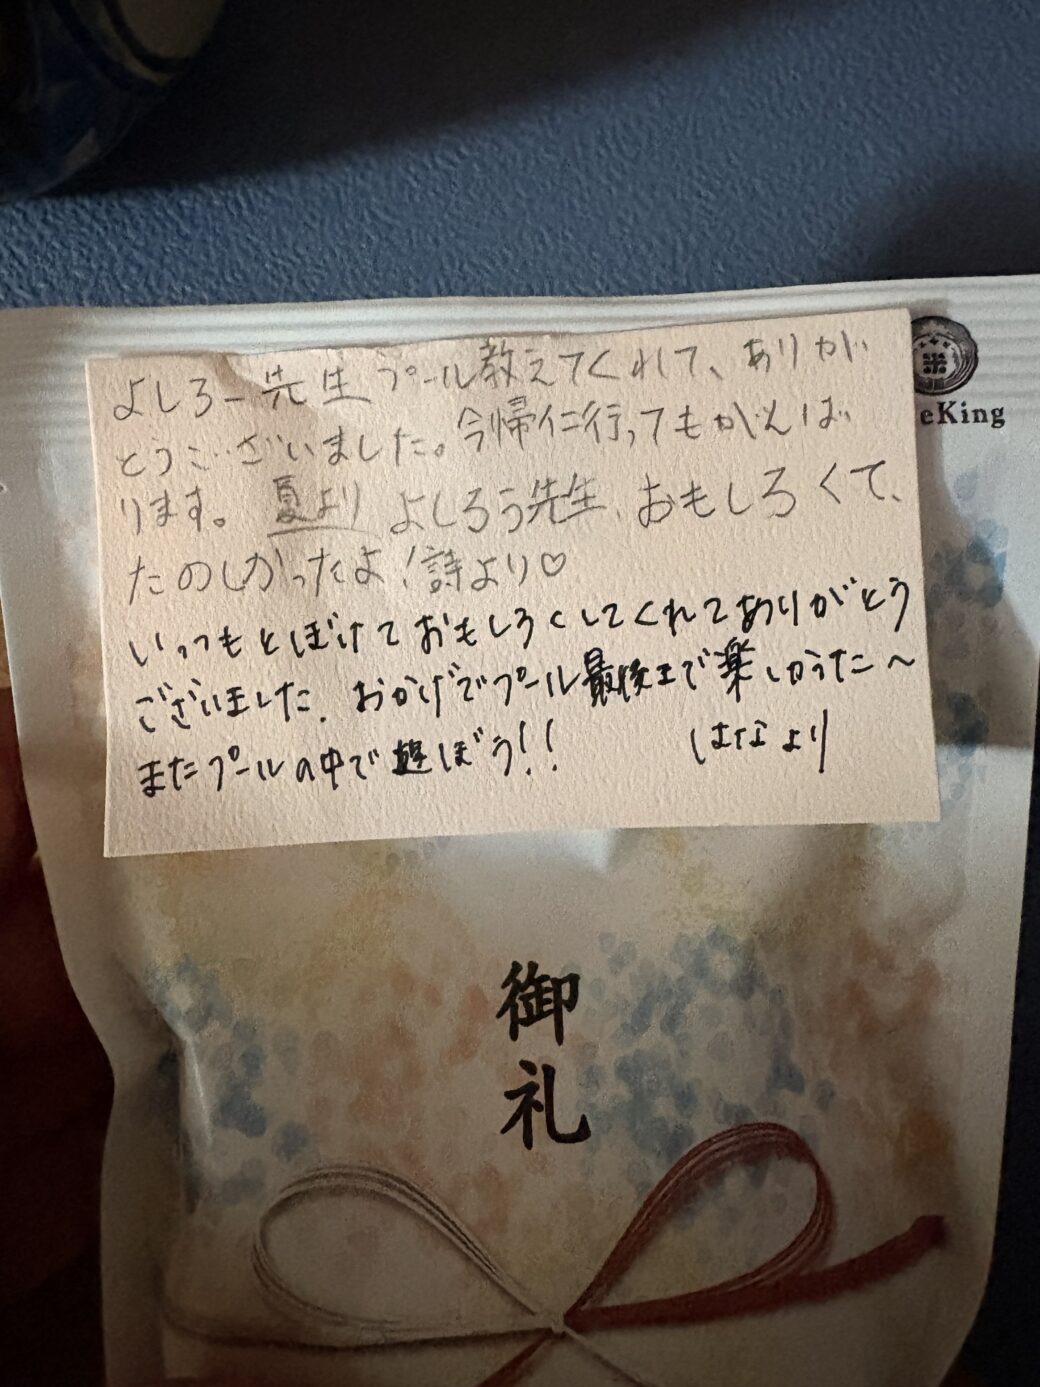 よしろー先生 プール教えてくれて、ありが
とうございました。今帰仁行ってもがんば
ります。 夏より よしろう先生、おもしろくて、
たのしかったよ！詩より♡
いっつもとぼけておもしろくしてくれてありがとう
ございました。おかげでプール最後まで楽しかった〜
またプールの中で遊ぼう!! はなより
米
eKing
御
礼